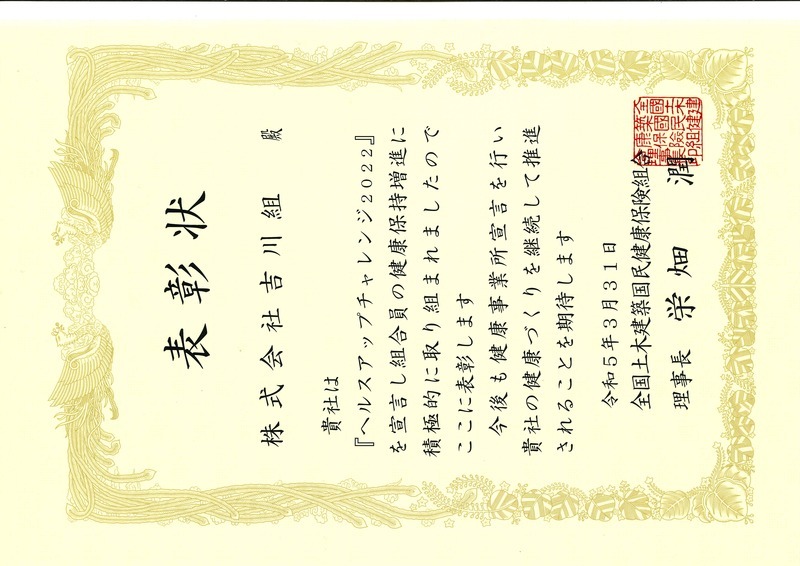 表彰状
株式会社吉川組 殿
貴社は
『ヘルスアップチャレンジ2022』
を宣言し組合員の健康保持増進に
積極的に取り組まれましたので
ここに表彰します
今後も健康事業所宣言を行い
貴社の健康づくりを継続して推進
されることを期待します
令和5年3月31日
全国土木建築国民健康保険組合
理事長 栄畑 潤